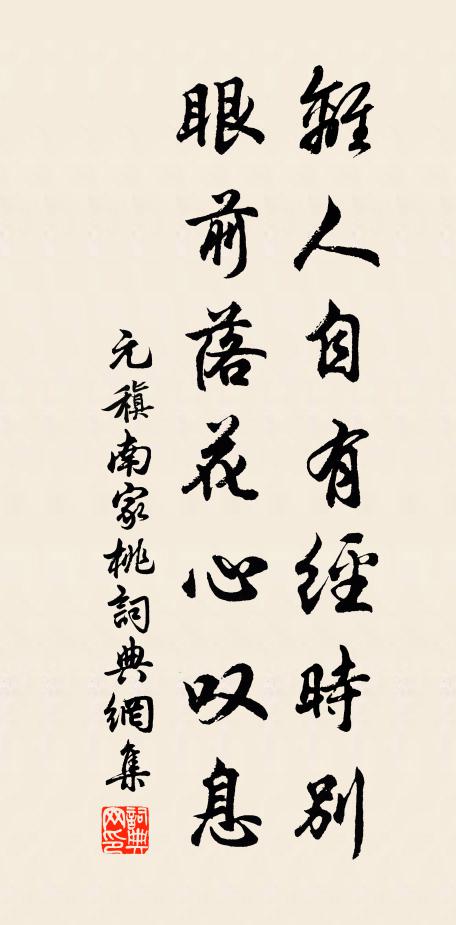 離人自有經時別
眼前落花心叹息
元稹南家桃詞典網集
詞典网印